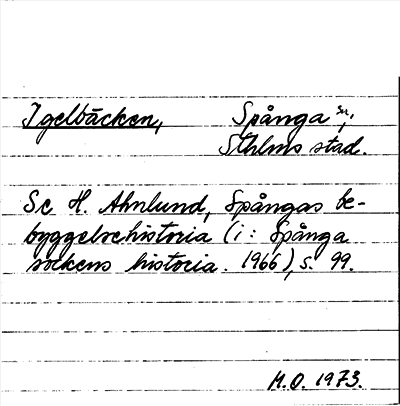 Igelbäcken, Spånga sn;
Sthlms stad.
Se H. Ahnlund, Spångas be-
byggelsehistoria (i: Spånga
sockens historia. 1966), s. 99.
M.O. 1973.